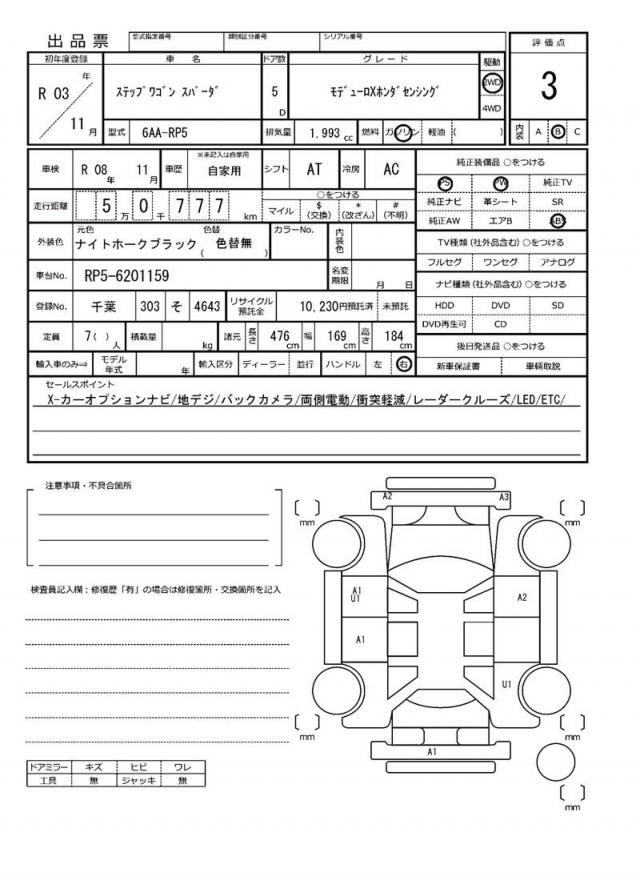 出品票
型式指定番号 類別区分番号 シリアル番号
評価点
3
初年度登録 車名 ドア数 グレード 駆動
R 03 年 11 月
ステップワゴン スパーダ
5 D
モデューロXホンダセンシング
2WD
4WD
型式 6AA-RP5 排気量 1,993 cc 燃料 ガソリン 軽油 ( )
内装 A B C
車検 R 08 年 11 月 車歴 ※未記入は自家用 自家用 シフト AT 冷房 AC
純正装備品 ○をつける
PS PW 純正TV
純正ナビ 革シート SR
純正AW エアB ABS
走行距離 5 万 0 千 7 7 7 km
○をつける
マイル $ (交換) * (改ざん) # (不明)
外装色 元色 ナイトホークブラック 色替 ( 色替無 ) カラーNo. 内装色
TV種類 (社外品含む) ○をつける
フルセグ ワンセグ アナログ
車台No. RP5-6201159 名変期限 月 日
ナビ種類 (社外品含む) ○をつける
HDD DVD SD
DVD再生可 CD
登録No. 千葉 303 そ 4643 リサイクル預託金 10,230円預託済 未預託
定員 7( ) 人 積載量 kg 諸元 長さ 476 cm 幅 169 cm 高さ 184 cm
後日発送品 ○をつける
新車保証書 車輌取説
輸入車のみ⇒ モデル年式 年 輸入区分 ディーラー 並行 ハンドル 左 右
セールスポイント
X-カーオプションナビ/地デジ/バックカメラ/両側電動/衝突軽減/レーダークルーズ/LED/ETC/
注意事項・不具合箇所
検査員記入欄：修復歴「有」の場合は修復箇所・交換箇所を記入
A2 A3
mm mm
A1
U1
A2
A1
U1
mm mm
A1
mm
ドアミラー キズ ヒビ ワレ
工具 無 ジャッキ 無